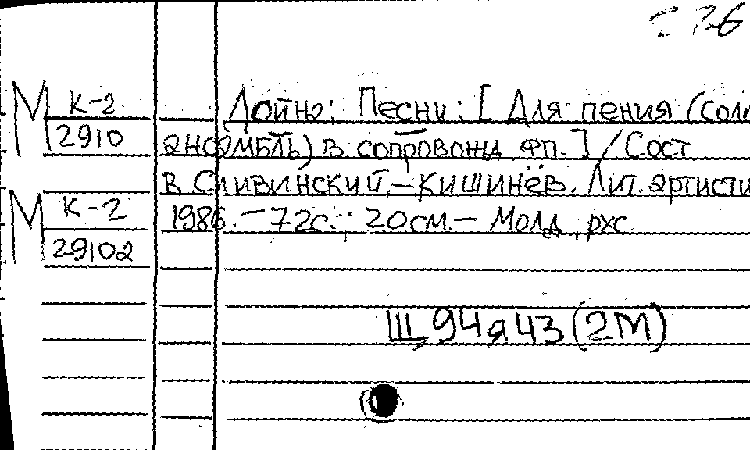 М К-2
2910
М К-2
29102
Дойнэ: Песни: [Для пения (соло
ансамбль) в сопровожд. фп.] / Сост
В Сливинский. – Кишинёв. Лит артисти
1986. – 72с.; 20см. – Молд, рус
Щ94я43(2М)